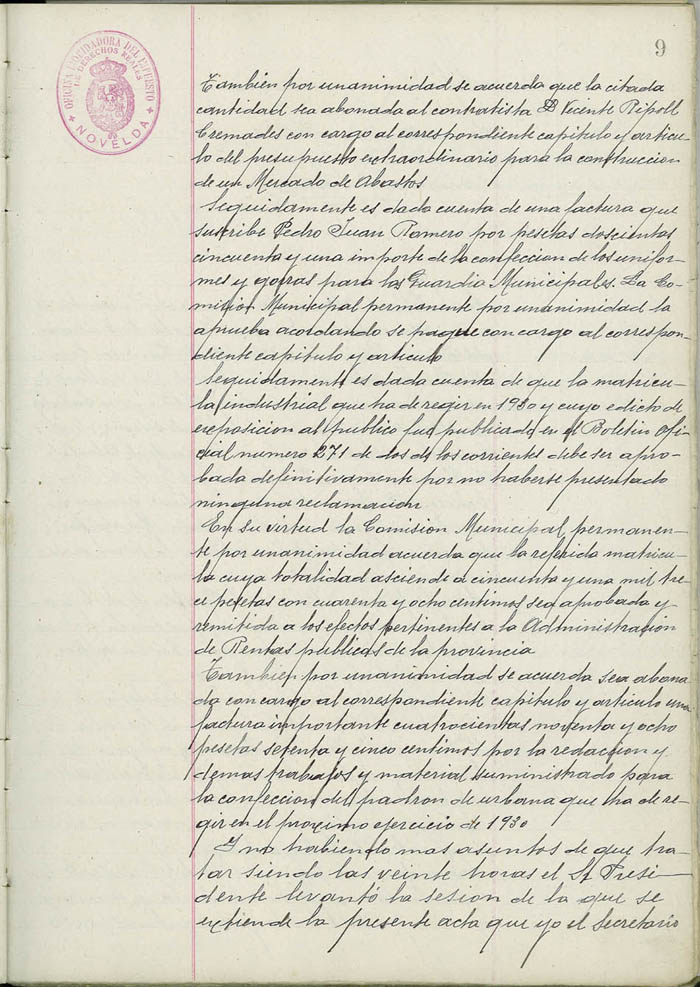 9
OFICINA LIQUIDADORA DEL IMPUESTO
DE DERECHOS REALES
NOVELDA
Tambien por unanimidad se acuerda que la citada
cantidad sea abonada al contratista D Vicente Ripoll
Cremades con cargo al correspondiente capitulo y articu-
lo del presupuesto extraordinario para la construccion
de un Mercado de Abastos
Seguidamente es dada cuenta de una factura que
suscribe Pedro Juan Romero por pesetas doscientas
cincuenta y una importe de la confeccion de los unifor-
mes y gorras para los Guardia Municipales. La Co-
mision Municipal permanente por unanimidad la
aprueba acordando se pague con cargo al correspon-
diente capitulo y articulo
Seguidamente es dada cuenta de que la matricu-
la industrial que ha de regir en 1930 y cuyo edicto de
exposicion al publico fue publicado en el Boletin Ofi-
cial numero 271 de los de los corrientes debe ser apro-
bada definitivamente por no haberse presentado
ninguna reclamacion
En su virtud la Comision Municipal permanen-
te por unanimidad acuerda que la referida matricu-
la cuya totalidad asciende a cincuenta y una mil tre
ce pesetas con cuarenta y ocho centimos sea aprobada y
remitida a los efectos pertinentes a la Administración
de Rentas publicas de la provincia
Tambien por unanimidad se acuerda sea abona
da con cargo al correspondiente capitulo y articulo una
factura importante cuatrocientas noventa y ocho
pesetas setenta y cinco centimos por la redaccion y
demas trabajos y material suministrado para
la confeccion del padron de urbana que ha de re-
gir en el proximo ejercicio de 1930
I no habiendo mas asuntos de que tra-
tar siendo las veinte horas el Sr Presi-
dente levantó la sesion de la que se
extiende la presente acta que yo el Secretario